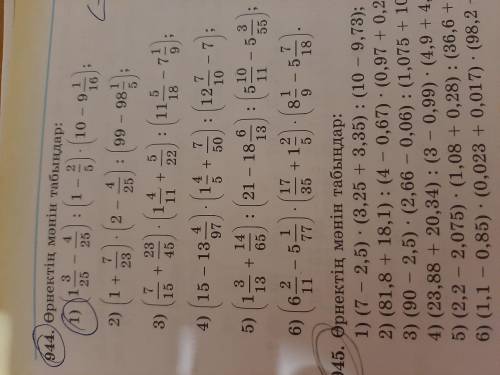 944. Өрнектің мәнін табыңдар:
1) (1 3/25 − 4/25) : (1 − 2/5) · (10 − 9 1/16);
2) (1 + 7/23) · (2 − 4/25) : (99 − 98 1/5);
3) (7/15 + 23/45) · (1 4/11 + 5/22) : (11 5/18 − 7 1/9);
4) (15 − 13 4/97) · (1 4/5 + 7/50) : (12 7/10 − 7);
5) (1 3/13 + 14/65) : (21 − 18 6/13) : (5 10/11 − 5 3/55);
6) (6 2/11 − 5 1/77) · (17/35 + 1 2/5) · (8 1/9 − 5 7/18).
945. Өрнектің мәнін табыңдар:
1) (7 − 2,5) · (3,25 + 3,35) : (10 − 9,73);
2) (81,8 + 18,1) : (4 − 0,67) · (0,97 + 0,2
3) (90 − 2,5) · (2,66 − 0,06) : (1,075 + 10
4) (23,88 + 20,34) : (3 − 0,99) · (4,9 + 4,
5) (2,2 − 2,075) · (1,08 + 0,28) : (36,6 +
6) (1,1 − 0,85) · (0,023 + 0,017) · (98,2 −